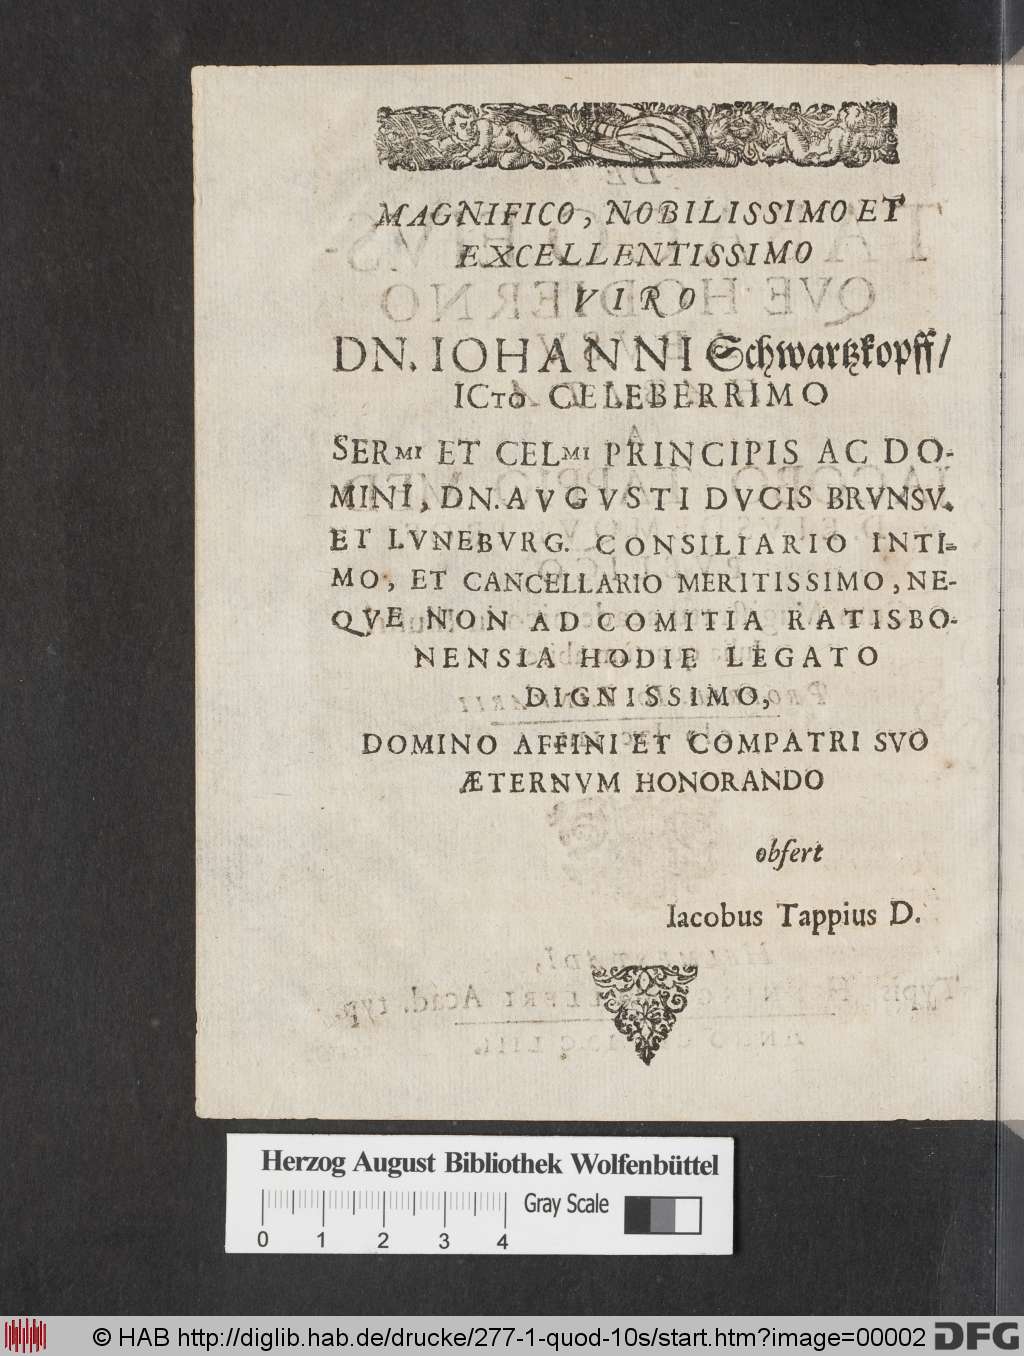 MAGNIFICO, NOBILISSIMO ET
EXCELLENTISSIMO
VIRO
DN. IOHANNI Schwartzkopff/
ICTO CELEBERRIMO
SERMI ET CELMI PRINCIPIS AC DO-
MINI, DN. AVGVSTI DVCIS BRVNSV.
ET LVNEBVRG. CONSILIARIO INTI-
MO, ET CANCELLARIO MERITISSIMO, NE-
QVE NON AD COMITIA RATISBO-
NENSIA HODIE LEGATO
DIGNISSIMO,
DOMINO AFFINI ET COMPATRI SVO
ÆTERNVM HONORANDO
obfert
Iacobus Tappius D.
Herzog August Bibliothek Wolfenbüttel
Gray Scale
0 1 2 3 4
© HAB http://diglib.hab.de/drucke/277-1-quod-10s/start.htm?image=00002 DFG